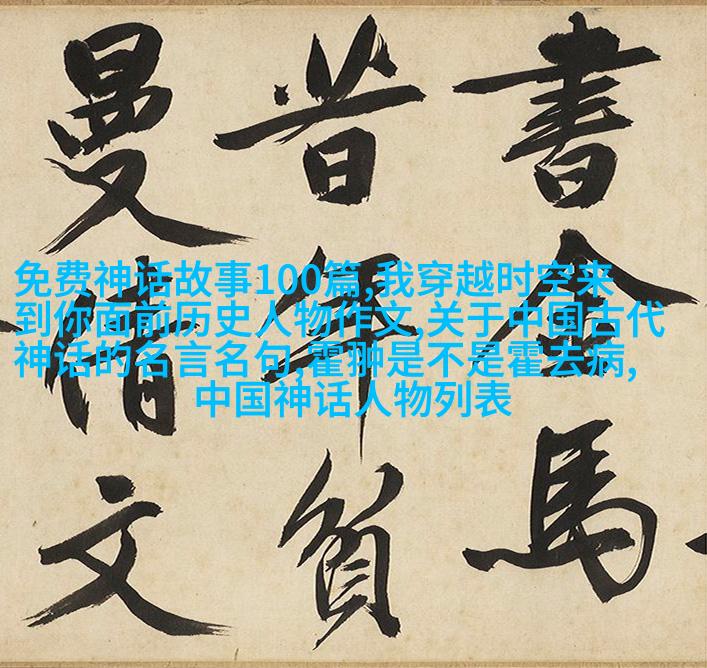 免费神话故事100篇,我穿越时空来
到你面前历史人物作文,关于中国古代
神话的名言名句,霍翀是不是霍去病,
中国神话人物列表
書金馬
昔年
曼倩文